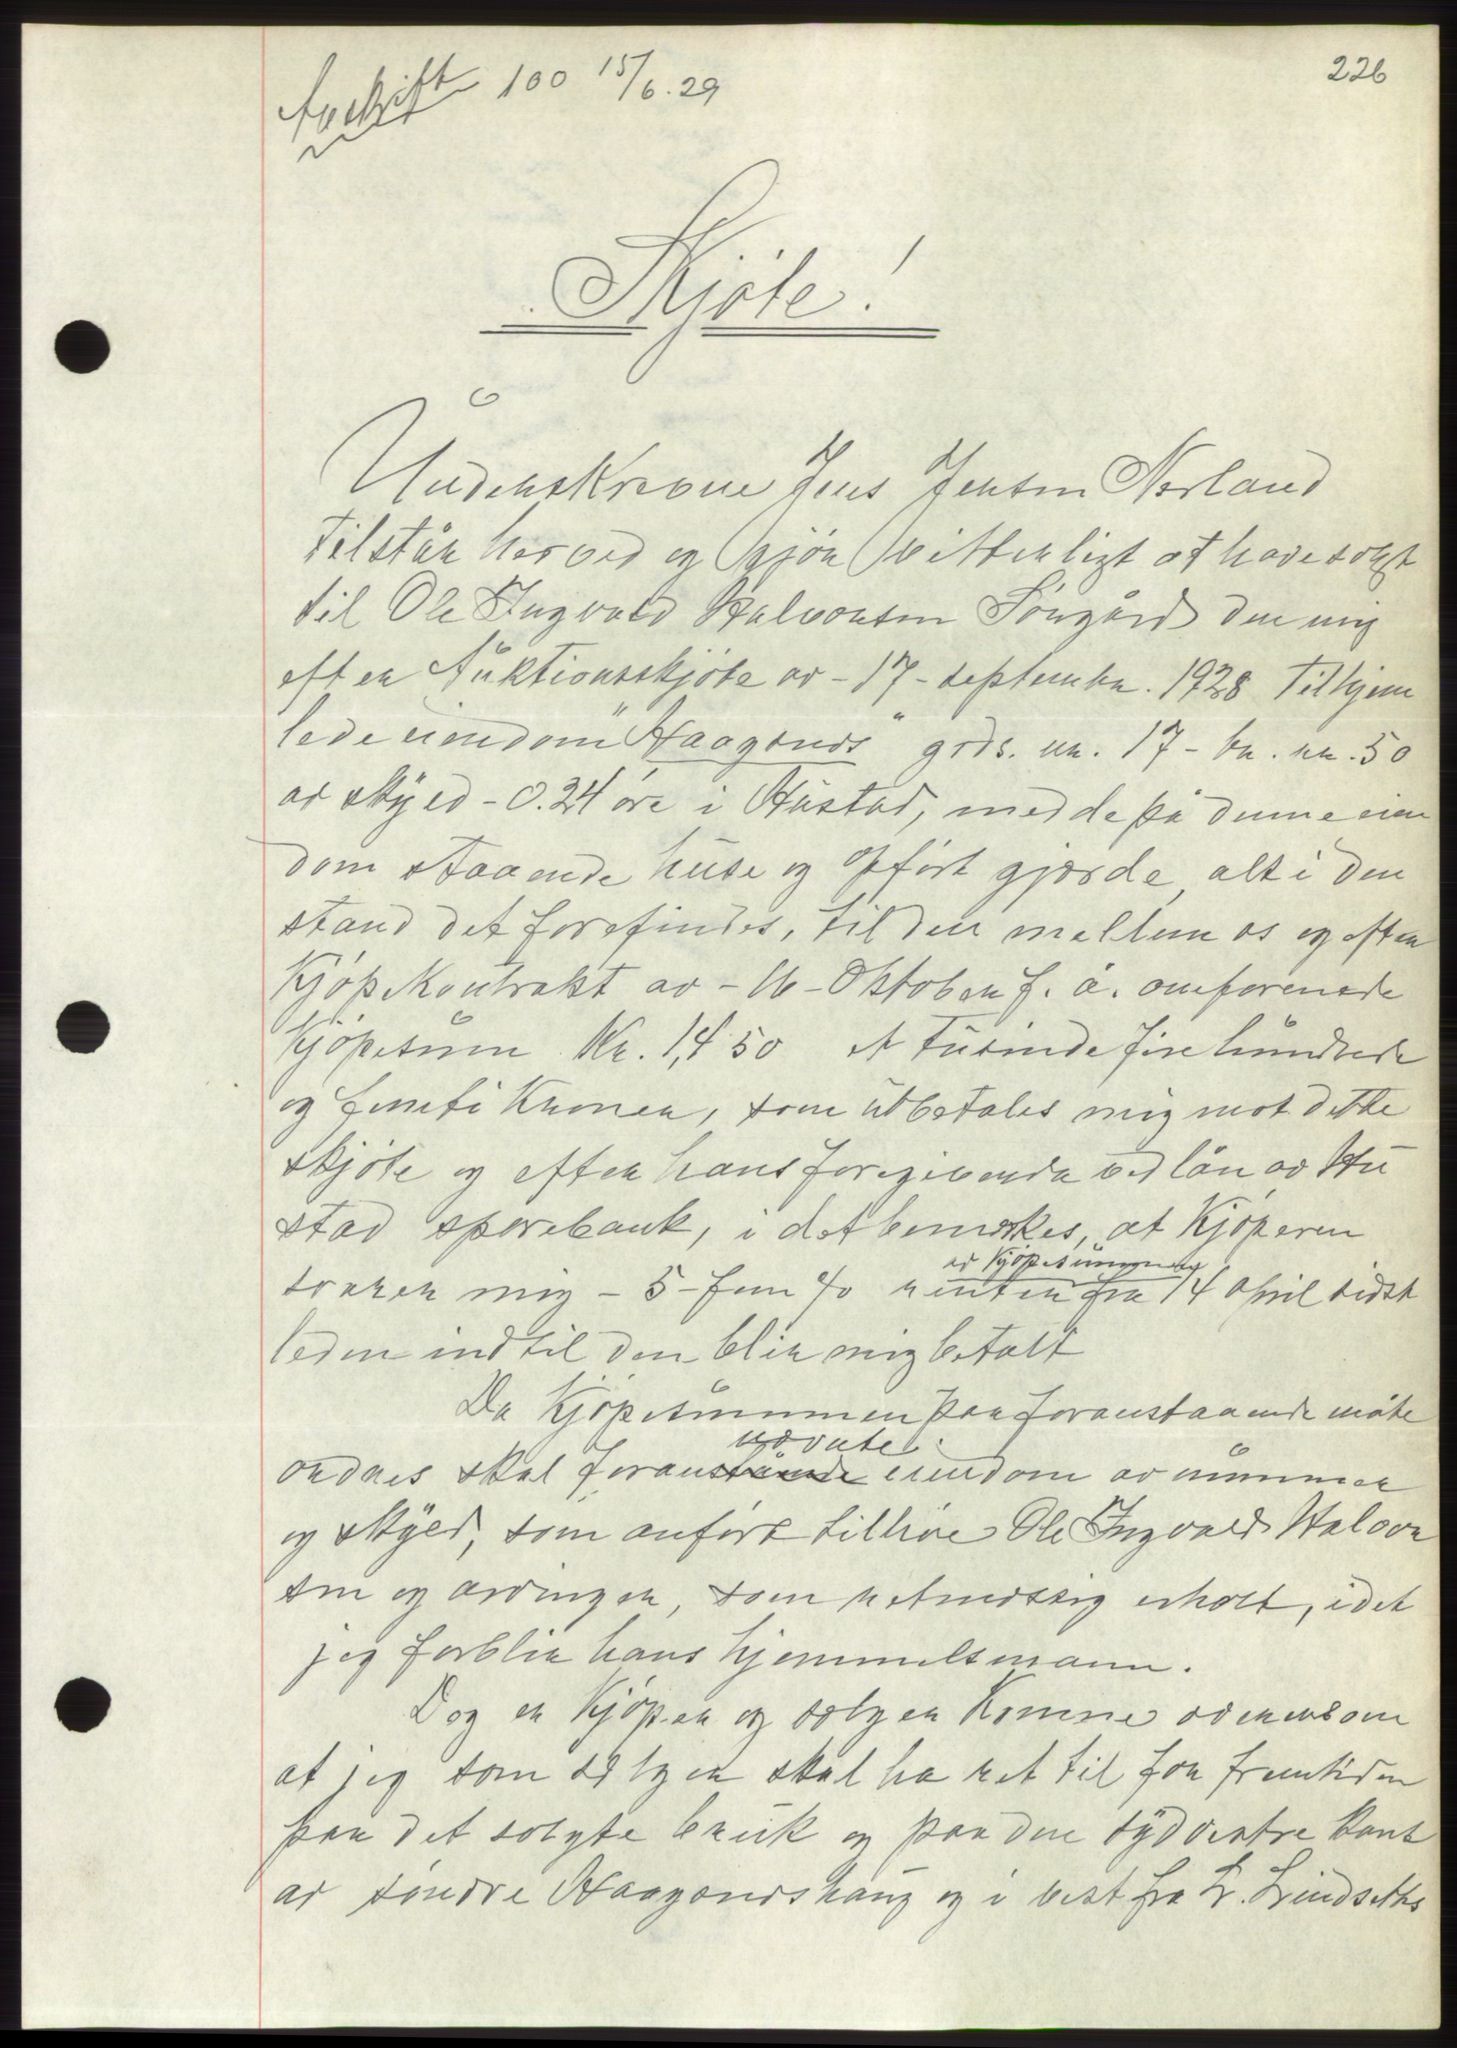 226
Avskrift 100 15/6.29
Skjöte!
Underskrevne Jens Jensen Nerland
tilstår herved og gjör vitterligt at have solgt
til Ole Ingvald Halvorsen Söngård den mig
efter Auktionsskjöte av - 17 - september. 1928 tilhjem
lede eiendom "Haagenes" grds. nr. 17 - br. nr. 50
av skyld - 0.24 öre i Hustad, med de på denne eien
dom staaende huse og opfört gjærde, alt i den
stand det forefindes, til den mellem os og efter
Kjöpekontrakt av - 16 - Oktober f. å. omforenede
Kjöpesum Kr. 1,450 et tusinde fire hundrede
og femti Kroner, som utbetales mig mot dette
skjöte og efter hans foregivende ved lån av Hu
stad sparebank, i det bemerkes, at Kjöperen
av Kjöpesummen
svarer mig - 5 - fem % renter fra 14 April sidst
leden indtil den blir mig betalt
Da Kjöpesummen paa foranstaaende måte
nævnte
ordnes skal foranstående eiendom av nummer
og skyld, som anfört tilhöre Ole Ingvald Halvor
sen og arvinger, som retmessig erholt, idet
jeg forblir hans hjemmelsmann.
Dog er Kjöper og sælger Komne overens om
at jeg som sælger skal ha ret til for fremtiden
paa det solgte bruk og paa den sydvestre kant
av söndre Haageneshaug og i vest fra L. Lindseths